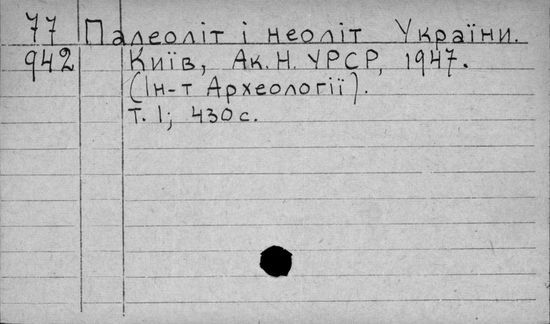 77 Палеоліт і неоліт України.
942 Київ, Ак. Н. УРСР, 1947.
(Ін-т Археології).
т. I; 430 с.